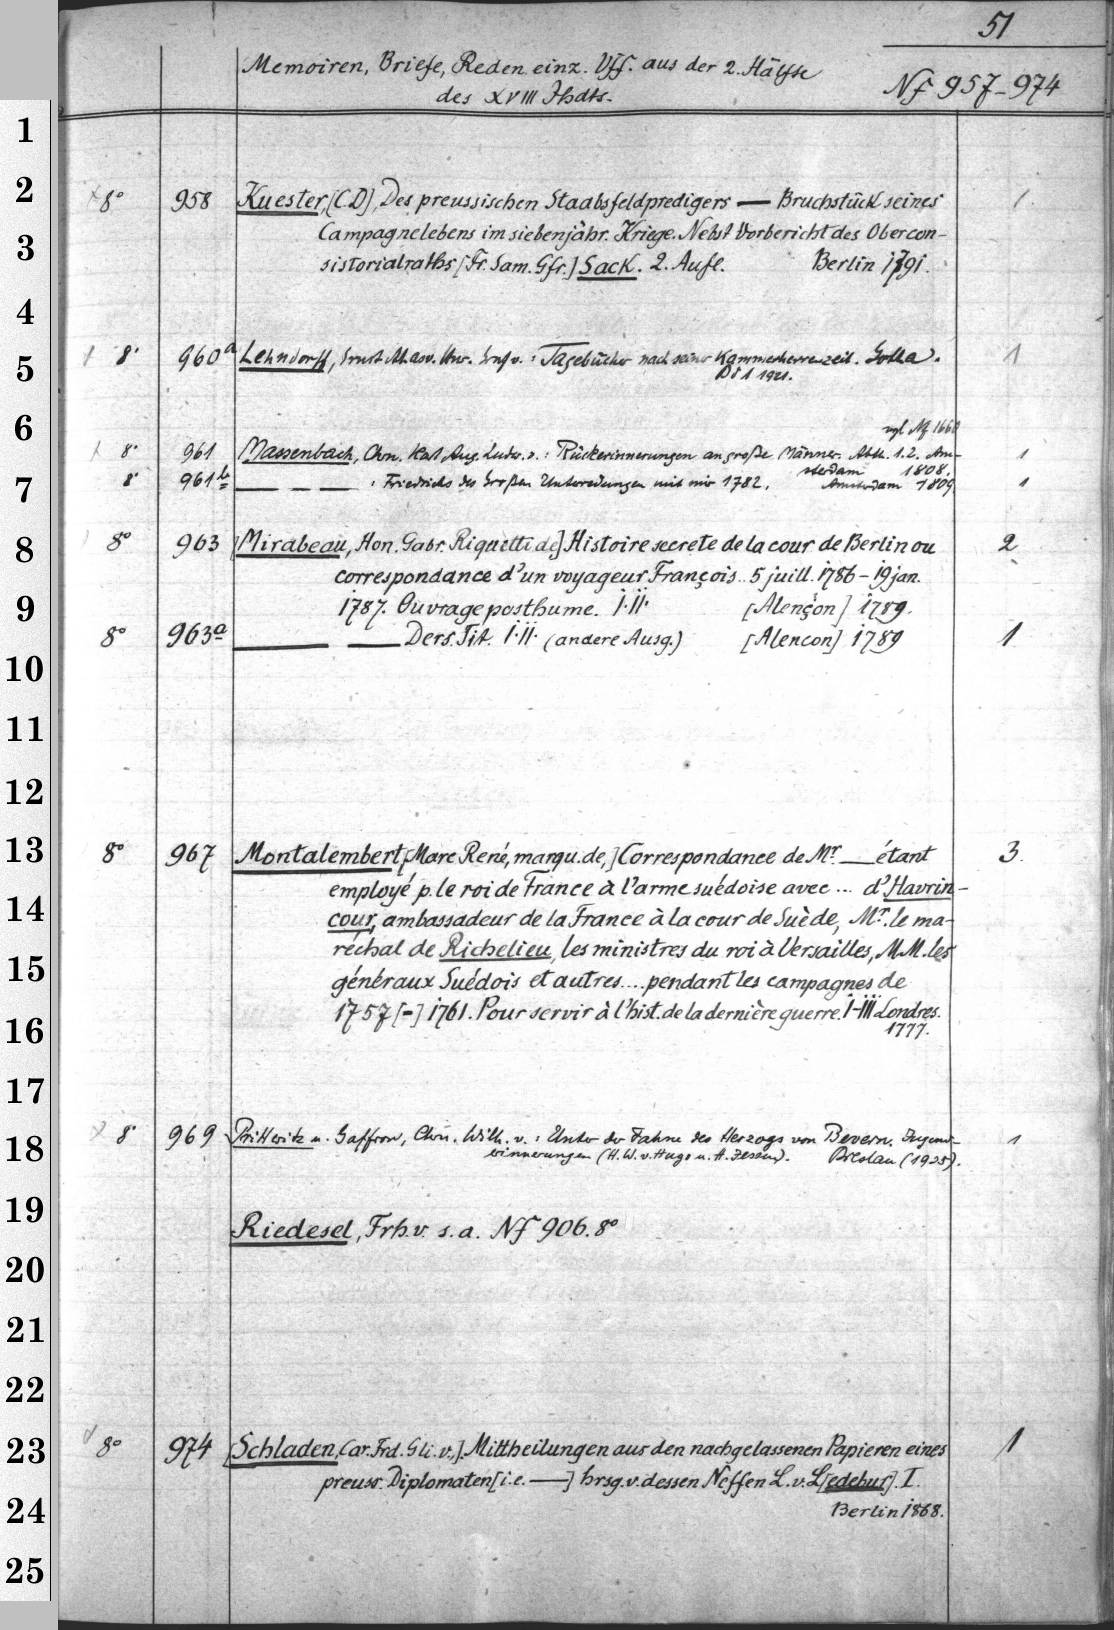 51
Memoiren, Briefe, Reden einz. Vff. aus der 2. Hälfte
des XVIII Jhdts.
Nf 957-974
1
2
8° 958 Kuester, [C D], Des preussischen Staabsfeldpredigers — Bruchstück seines 1
3
Campagnelebens im siebenjähr. Kriege. Nebst Vorbericht des Obercon-
sistorialraths [Fr. Sam. Gfr.] Sack. 2. Aufl. Berlin 1791.
4
5
8° 960a Lehndorff, Ernst Ahasv. Hnr. Graf v.: Tagebücher nach seiner Kammerherrenzeit. Gotha. 1
Bd 1 1921.
6
vgl Nf 1660
8° 961 Massenbach, Chn. Karl Aug. Ludw. v.: Rückerinnerungen an große Männer. Abth. 1.2. Am- 1
sterdam 1808.
7
8° 961b — — — : Friedrichs des Großen Unterredungen mit mir 1782. Amsterdam 1809 1
8
8° 963 [Mirabeau, Hon. Gabr. Riquetti de] Histoire secrete de la cour de Berlin ou 2
correspondance d'un voyageur François.. 5 juill. 1786 - 19 jan.
9
1787. Ouvrage posthume. I.II. [Alençon] 1789.
8° 963a — — Ders. Tit. I.II. (andere Ausg.) [Alencon] 1789 1
10
11
12
13
8° 967 Montalembert, [Marc René, marqu. de,] Correspondance de Mr. — étant 3
employé p. le roi de France à l'arme suédoise avec ... d'Havrin-
14
cour, ambassadeur de la France à la cour de Suède, Mr. le ma-
réchal de Richelieu, les ministres du roi à Versailles, M.M. les
15
généraux Suédois et autres.... pendant les campagnes de
16
1757 [-] 1761. Pour servir à l'hist. de la dernière guerre. I-III Londres.
1777.
17
18
8° 969 Prittwitz u. Gaffron, Chn. Wilh. v.: Unter der Fahne des Herzogs von Bevern. Jugend- 1
erinnerungen (H. W. v. Hugo u. H. Jessen). Breslau (1935).
19
Riedesel, Frh. v. s. a. Nf 906. 8°
20
21
22
23
8° 974 [Schladen, Car. Frd. Gli. v.,] Mittheilungen aus den nachgelassenen Papieren eines 1
preuss. Diplomaten [i.e. —] hrsg. v. dessen Neffen L. v. L[edebur]. I.
24
Berlin 1868.
25